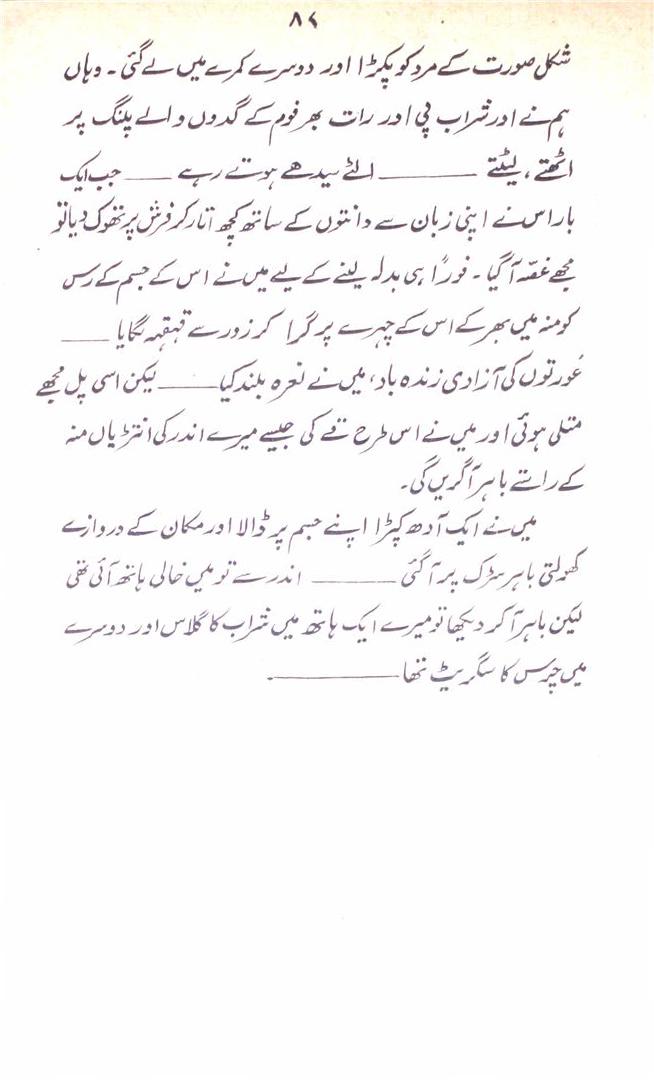 ۸۲
شکل صورت کے مرد کو پکڑا اور دوسرے کمرے میں لے گئی۔ وہاں
ہم نے اور شراب پی اور رات بھر فوم کے گدوں والے پلنگ پر
اٹھتے، لیٹتے ______ الٹے سیدھے ہوتے رہے ____ جب ایک
بار اس نے اپنی زبان سے دانتوں کے ساتھ کچھ اتار کر فرش پر تھوک دیا تو
مجھے غصّہ آ گیا۔ فوراً ہی بدلہ لینے کے لیے میں نے اس کے جسم کے رس
کو منہ میں بھر کے اس کے چہرے پر گرا کر زور سے قہقہہ لگایا ____
عورتوں کی آزادی زندہ باد، میں نے نعرہ بلند کیا ____ لیکن اسی پل مجھے
متلی ہوئی اور میں نے اس طرح قے کی جیسے میرے اندر کی انتڑیاں منہ
کے راستے باہر آ گریں گی۔
میں نے ایک آدھ کپڑا اپنے جسم پر ڈالا اور مکان کے دروازے
کھولتی باہر سڑک پر آ گئی ______ اندر سے تو میں خالی ہاتھ آئی تھی
لیکن باہر آ کر دیکھا تو میرے ایک ہاتھ میں شراب کا گلاس اور دوسرے
میں چرس کا سگریٹ تھا ________۔